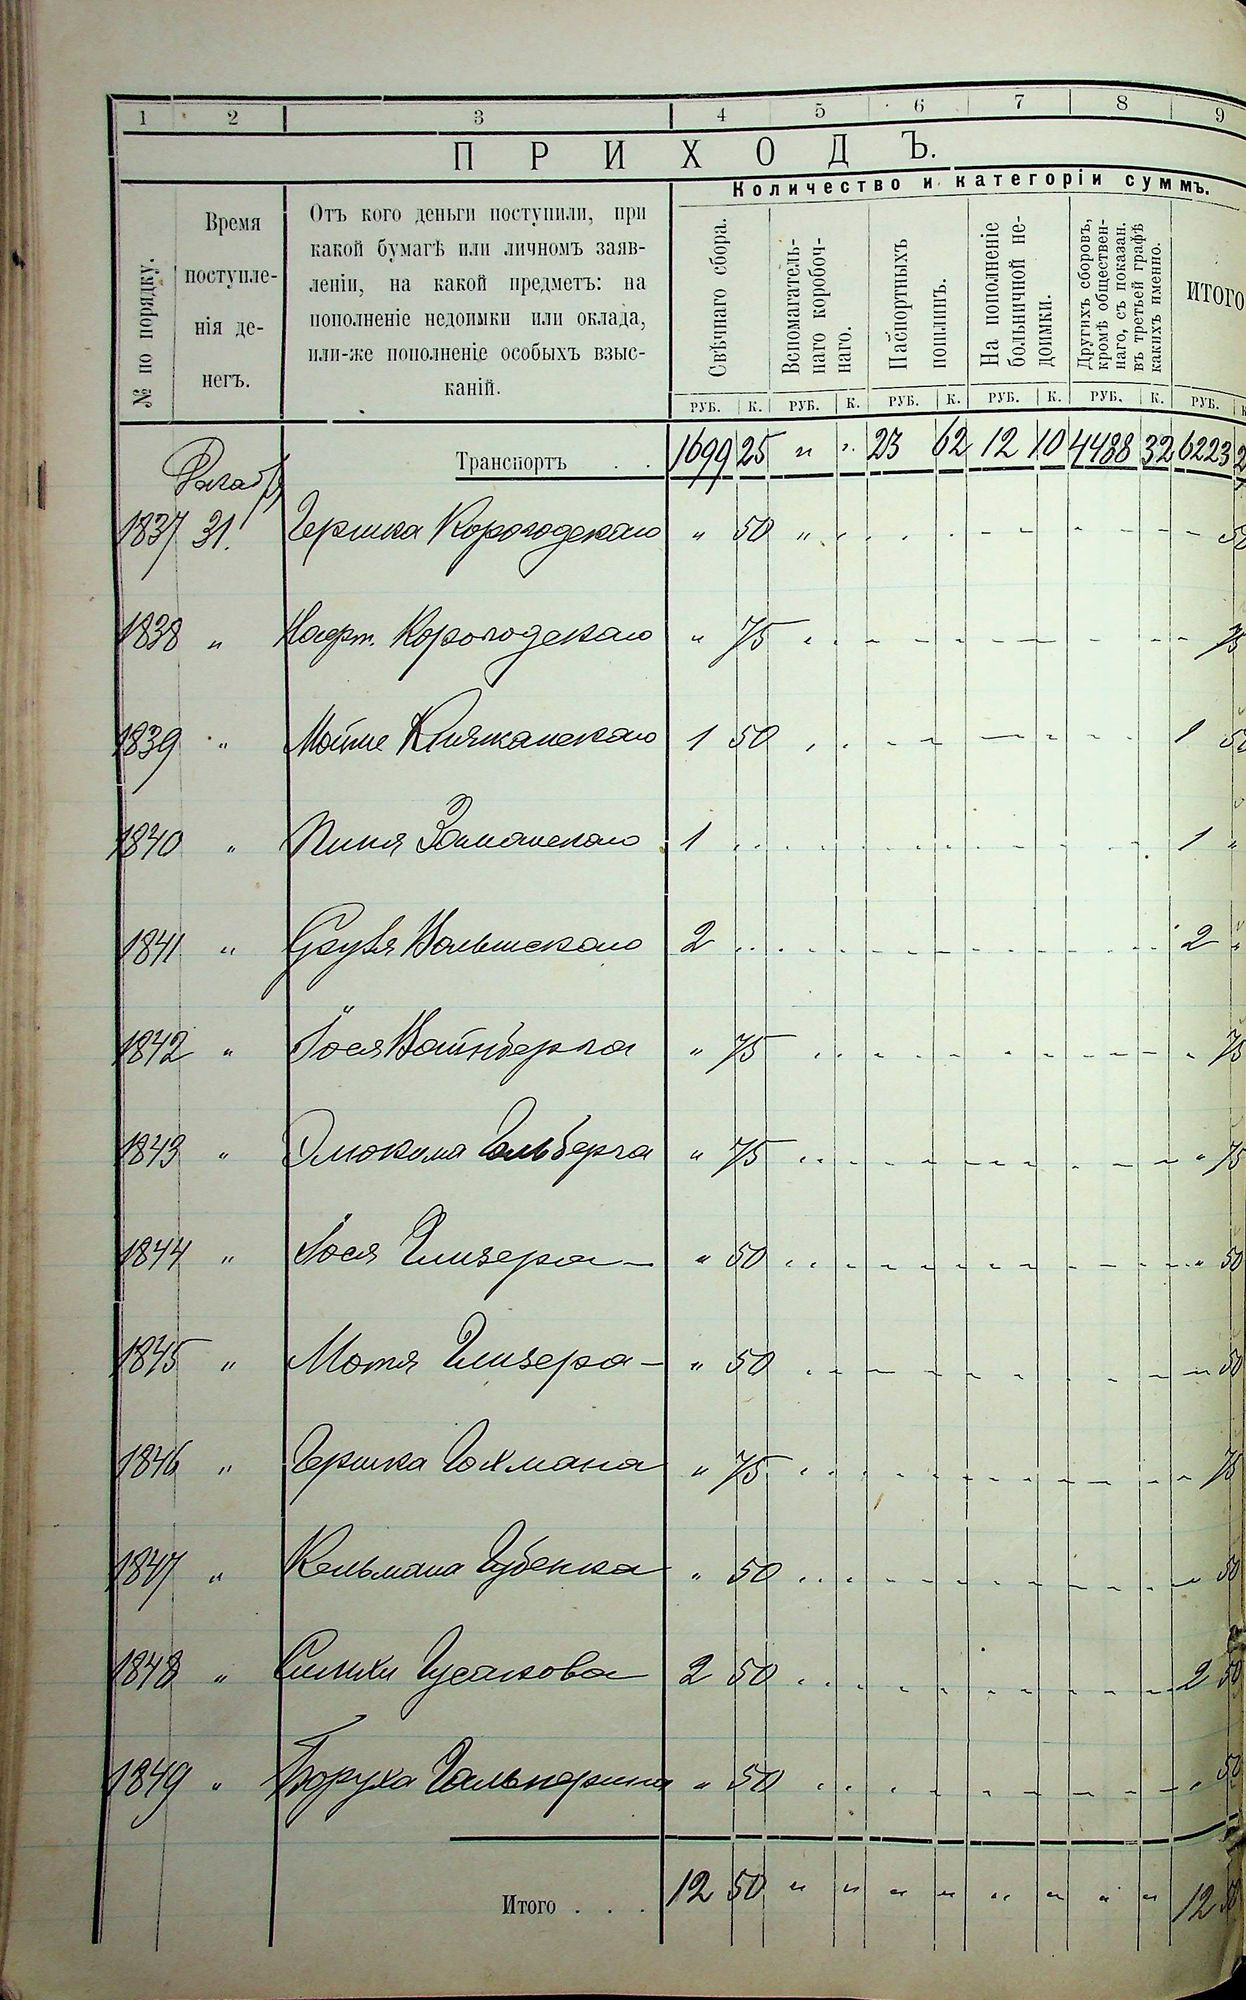 1 2 3 4 5 6 7 8 9
ПРИХОДЪ.
Количество и категоріи суммъ.
№ по порядку.
Время
поступле-
нія де-
негъ.
Отъ кого деньги поступили, при
какой бумагѣ или личномъ заяв-
леніи, на какой предметъ: на
пополненіе недоимки или оклада,
или-же пополненіе особыхъ взыс-
каній.
Свѣчнаго сбора.
Вспомагатель-
наго коробоч-
наго.
Паспортныхъ
пошлинъ.
На пополненіе
больничной не-
доимки.
Другихъ сборовъ,
кромѣ обществен-
наго, съ показан.
въ третьей графѣ
какихъ именно.
ИТОГО
РУБ. К. РУБ. К. РУБ. К. РУБ. К. РУБ. К. РУБ.
Транспортъ . . 1699 25 " " 23 62 12 10 4488 32 6223
1837 31. Гершка Корогодскаго " 50 " 50
1838 " Корогодскаго " 75 " 75
1839 " Мойше 1 50 1 50
1840 " Пиня 1 1 "
1841 " 2 2 "
1842 " Іося Вайнберга " 75 " 75
1843 " Гольберга " 75 " 75
1844 " Іося Глизера " 50 " 50
1845 " Мотя Глизера " 50 50
1846 " Гершка Гохмана " 75 75
1847 " Кельмана Губенка " 50 " 50
1848 " Симхи Гусакова 2 50 2 50
1849 " Боруха Гальперина " 50 " 50
Итого . . . 12 50 " " " " " " " " 12 50